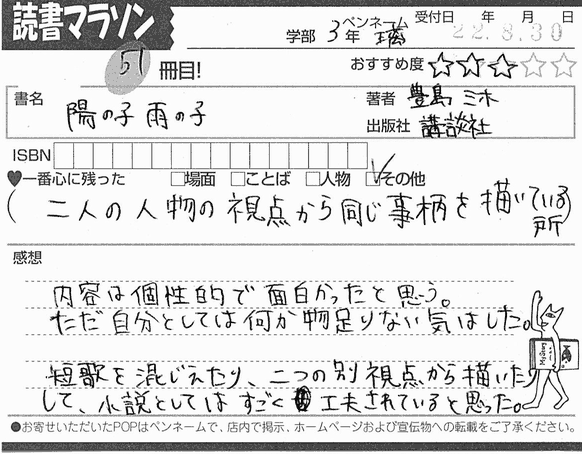 読書マラソン
学部 3年 ペンネーム 瑤 受付日 年 月 日
22.8.30
51 冊目!
おすすめ度 ★★★☆☆
書名 陽の子 雨の子
著者 豊島 ミホ
出版社 講談社
ISBN
♥一番心に残った □場面 □ことば □人物 ☑その他
(二人の人物の視点から同じ事柄を描いている所)
感想
内容は個性的で面白かったと思う。
ただ自分としては何か物足りない気はした。
短歌を混じえたり、二つの別視点から描いたり
して、小説としてはすごく工夫されていると思った。
●お寄せいただいたPOPはペンネームで、店内で掲示、ホームページおよび宣伝物への転載をご了承ください。